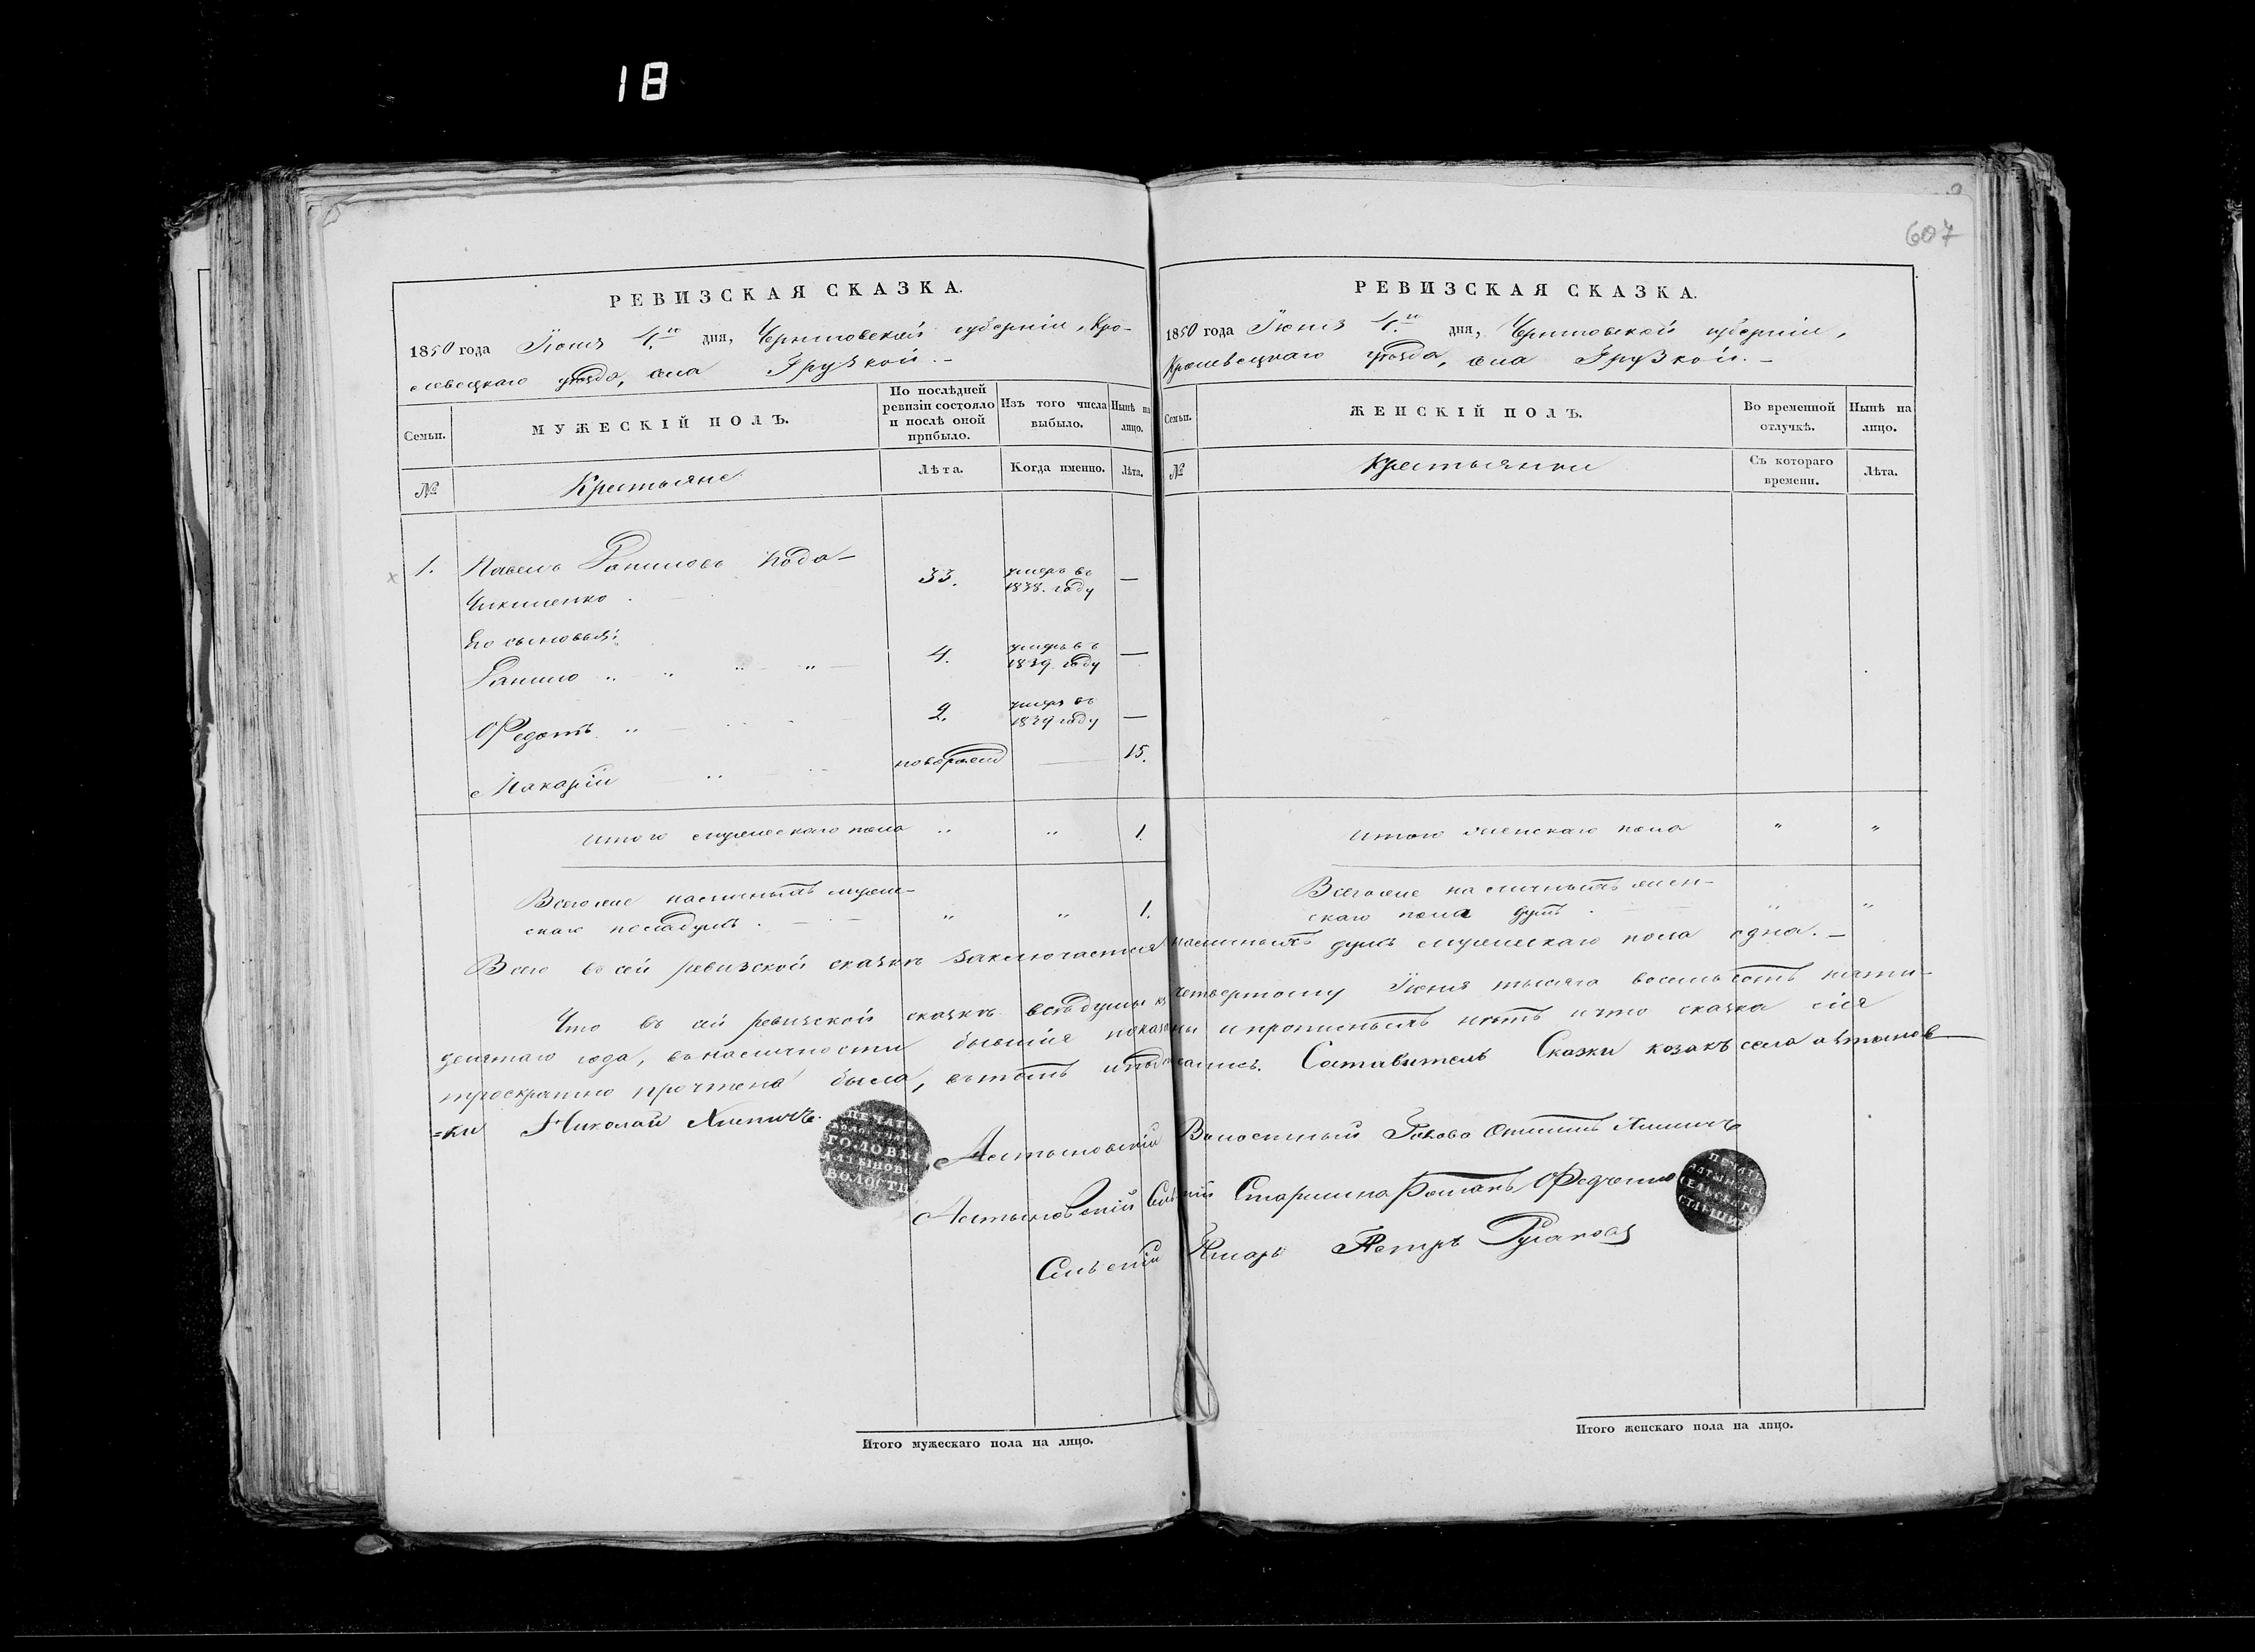 18
607
РЕВИЗСКАЯ СКАЗКА.
1850 года Іюня 4.го дня, Черниговской губерніи, Кро-
левецкаго уѣзда, села Грузкой. –
Семьи.
МУЖЕСКІЙ ПОЛЪ.
По послѣдней ревизіи состояло и послѣ оной прибыло.
Изъ того числа выбыло.
Нынѣ на лицо.
№
Крестьяне
Лѣта.
Когда именно.
Лѣта.
1. Павелъ Даниловъ
33. умеръ въ 1838. году —
Его сыновья:
Данило 4. умеръ въ 1839. году —
Федотъ 2. умеръ въ 1839 году —
Макарій новорожд 15.
Итого мужескаго пола " " 1.
Всего же наличныхъ муже-
скаго пола душъ " " 1.
РЕВИЗСКАЯ СКАЗКА.
1850 года Іюня 4.го дня, Черниговской губерніи,
Кролевецкаго уѣзда, села Грузкой. –
Семьи.
ЖЕНСКІЙ ПОЛЪ.
Во временной отлучкѣ.
Нынѣ на лицо.
№
Крестьянки
Съ котораго времени.
Лѣта.
Итого женскаго пола " "
Всего же наличныхъ жен-
скаго пола душъ " "
Всего въ сей ревизской сказкѣ заключается наличныхъ душъ мужескаго пола одна. –
Что въ сей ревизской сказкѣ всѣ души къ четвертому Іюня тысяча восемьсотъ пяти-
десятаго года, въ наличности бывшія показаны и прописныхъ нѣтъ и что сказка сія
троекратно прочтена была, въ томъ и подписались. Составитель Сказки козакъ села Алтынов-
=ки Николай
ПЕЧАТЬ
ГОЛОВЫ
АЛТЫНОВС
ВОЛОСТИ
Алтыновскій Волостный Голова
Алтыновскій Сельскій Старшина Романъ
ПЕЧАТЬ
АЛТЫНОВСК
СЕЛЬСКАГО
СТАРШИН
Сельскій Писарь Петръ
Итого мужескаго пола на лицо.
Итого женскаго пола на лицо.